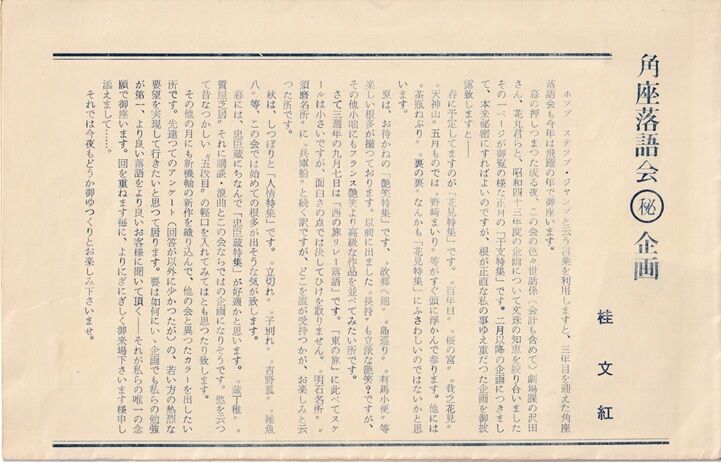 角座落語会㊙企画
桂文紅
ホップ ステップ・ジャンプと云う言葉を利用しますと、三年目を迎えた角座
落語会も今年は飛躍の年で御座います。
暮の押しつまった或る夜、この会の色々世話係(会計も含めて)劇場課の沢田
さん、花丸君らと、昭和四十三年度の企画について文殊の知恵を絞り合いました
その一ページが御覧の様な正月の「干支特集」です。二月以降の企画につきまし
て、本来秘密にすればよいのですが、根が正直な私の事ゆえ重だつた企画を御披
露致しますと――
春に予定してますのが「花見特集」です。〝百年目〟〝桜の宮〟〝貧乏花見〟
〝天神山〟五月ものでは〝野崎まいり〟等がすぐ頭に浮かんで参ります。他には
〝茶瓶ねずり〟〝裏の裏〟なんかも「花見特集」にふさわしいのではないかと思
います。
夏は、お待かねの「艶笑特集」です、〝故郷へ錦〟〝島巡り〟〝有馬小便〟等
楽しい根多が揃つております。以前に出ました〝長持〟も立派な艶笑?ですが、
その他小咄にもフランス艶笑より高級な作品を並べてみたい所です。
さて三週年の九月七日は「西の旅リレー落語」です。「東の旅」に此べてスケ
ールは小さいですが、面白さの点では決してひけを取りません。〝明石名所〟〝
須磨名所〟に〝兵庫船〟と続く訳ですが、どこを誰が受持つかが、お楽しみと云
つた所です。
秋は、しつぽりと「人情特集」です。〝立切れ〟〝子別れ〟〝吉野狐〟〝雑魚
八〟等、この会では始めての根多が出そうな気が致します。
暮には、忠臣蔵にちなんで「忠臣蔵特集」が好適かと思います。〝蔵丁稚〟〝
質屋芝居〟それに講談・浪曲とこの会ならではの企画になりそうです。慾を云つ
て昔なつかしい〝五段目〟の軽口を入れてみてはとも思つたり致します。
その他の月にも新機軸の新作を織り込んで、他の会と異つたカラーを出したい
所です。先達つてのアンケート(回答が以外に少かつたが)の、若い方の熱烈な
要望を実現して行きたいと思つて居ります。要は如何にいゝ企画でも私らの勉強
が第一、より良い落語をより良いお客様に聞いて頂く――それが私らの唯一の念
願で御座います。回を重ねます毎に、よりにぎにぎしく御来場下さいます様申し
添えまして……。
それでは今夜もどうか御ゆつくりとお楽しみ下さいませ。